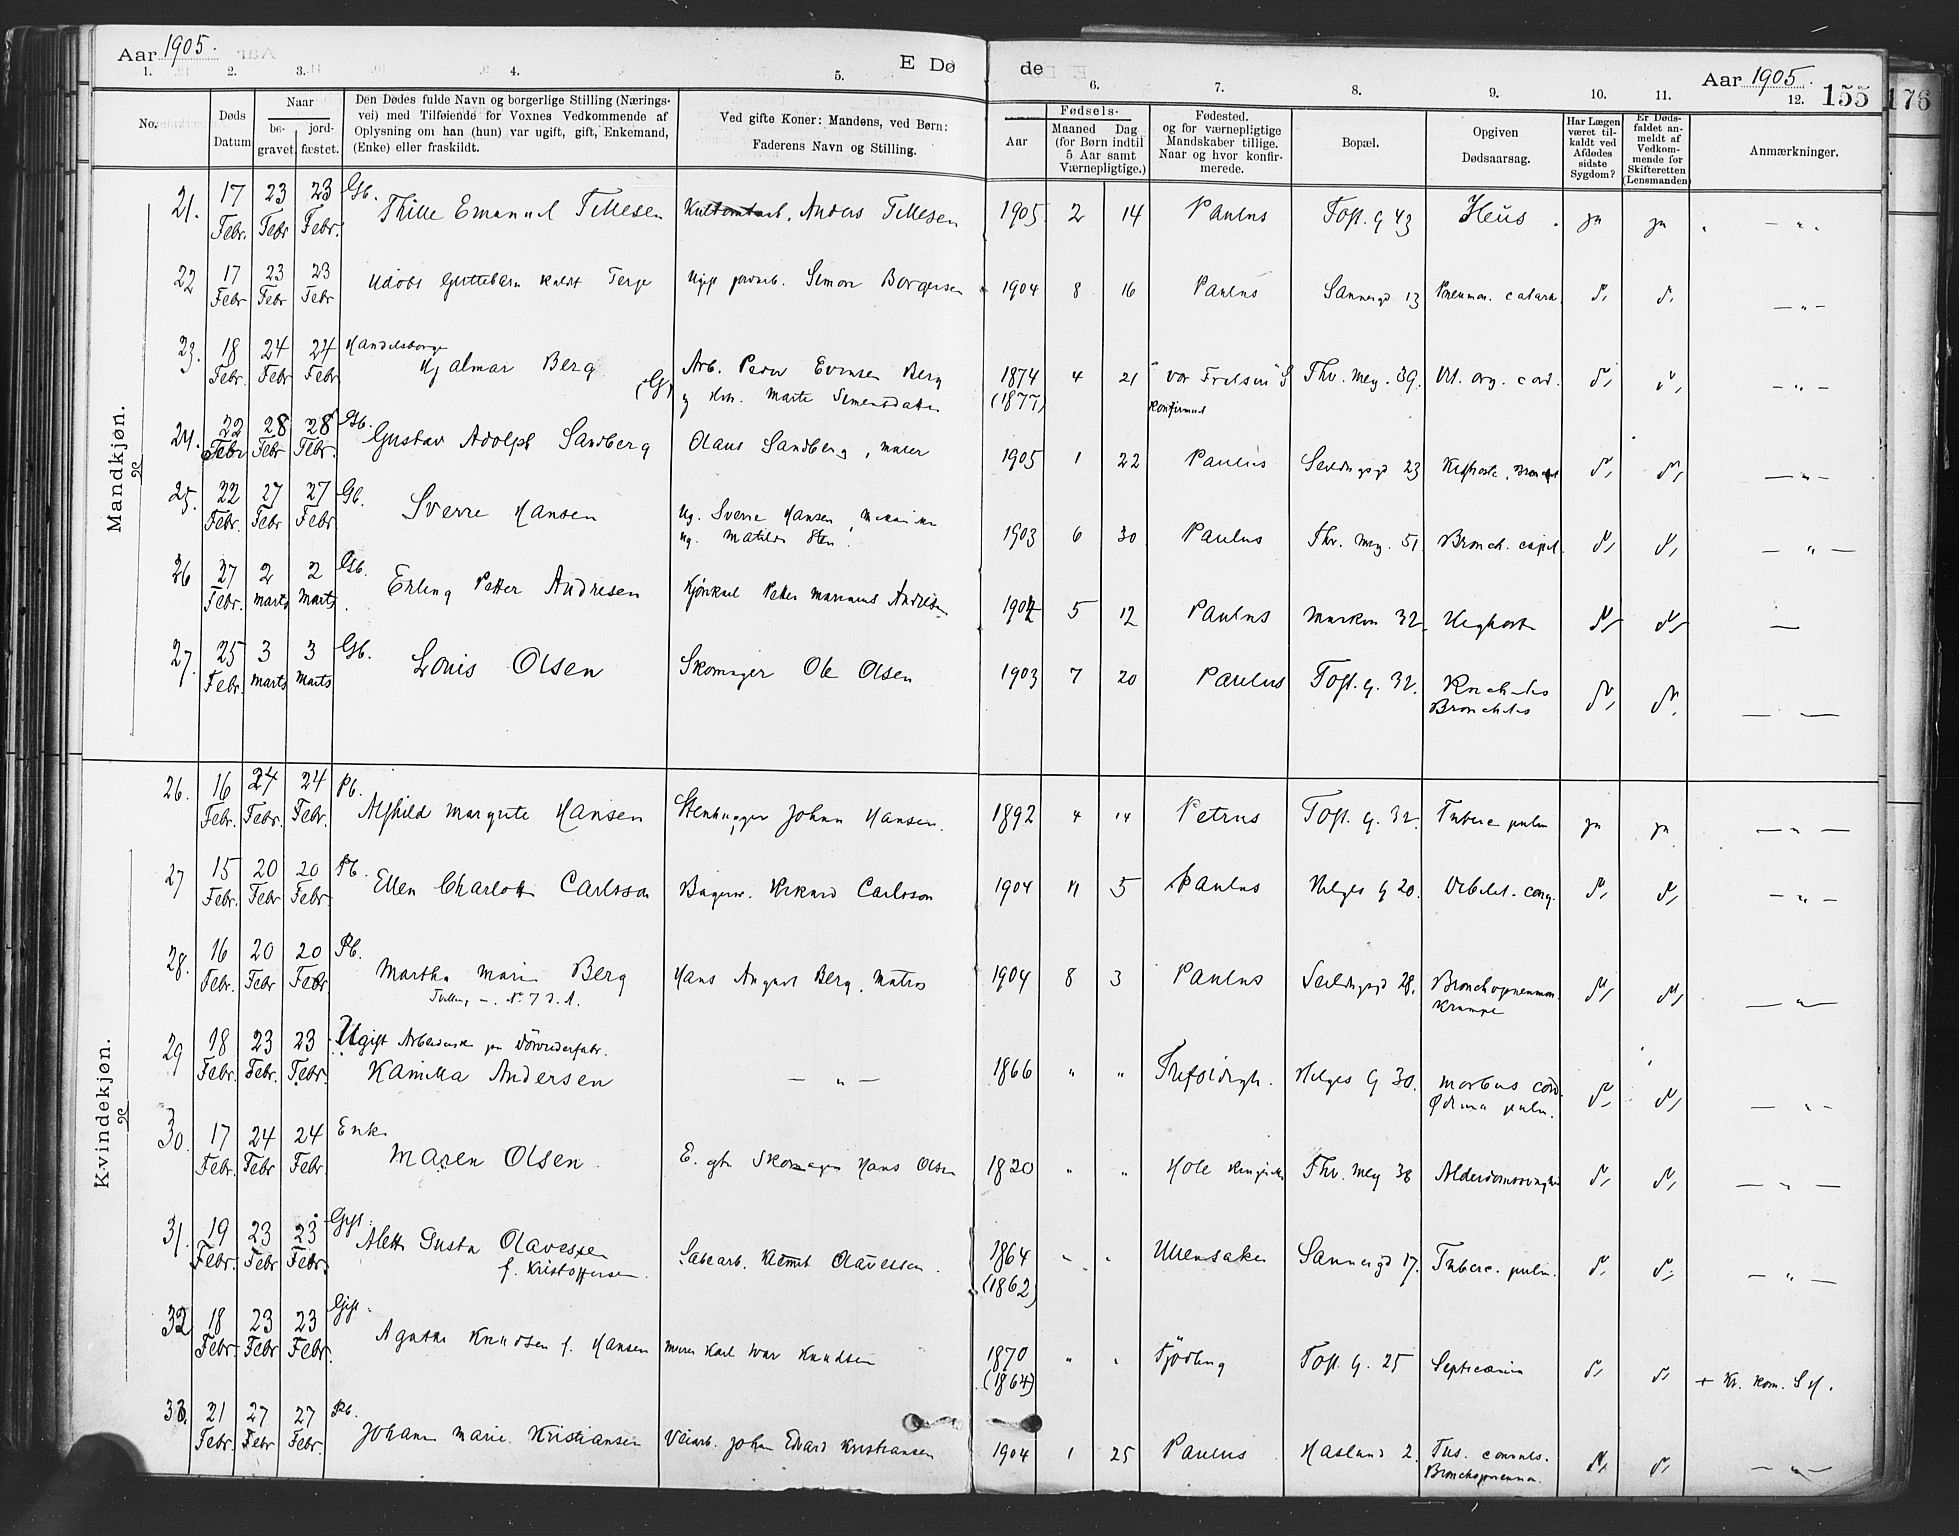 Aar 1905.
E Dø
de
Aar 1905.
155
176
1. 2. 3. 4. 5. 6. 7. 8. 9. 10. 11. 12.
No.
Døds
Datum
Naar
be-
gravet.
jord-
fæstet.
Den Dødes fulde Navn og borgerlige Stilling (Nærings-
vei) med Tilføiende for Voxnes Vedkommende af
Oplysning om han (hun) var ugift, gift, Enkemand,
(Enke) eller fraskildt.
Ved gifte Koner: Mandens, ved Børn:
Faderens Navn og Stilling.
Fødsels-
Aar
Maaned Dag
(for Børn indtil
5 Aar samt
Værnepligtige.)
Fødested.
og for værnepligtige
Mandskaber tillige.
Naar og hvor konfir-
merede.
Bopæl.
Opgiven
Dødsaarsag.
Har Lægen
været til-
kaldt ved
Afdødes
sidste
Sygdom?
Er Døds-
faldet an-
meldt af
Vedkom-
mende for
Skifteretten
(Lensmanden)
Anmærkninger.
Mandkjøn.
21. 17 Febr. 23 Febr 23 Febr. Gb. Thille Emanuel Tellesen Anders Tellesen 1905. 2 14 Paulus Toft. g 43 ja ja — „ —
22 17 Febr 23 Febr 23 Febr Udøbt Guttebarn kaldt Terje Ugift Simon Borgersen 1904 8 16 Paulus Sannergd 13 Pneumon. catarrh. d. d. — „ —
23. 18 Febr. 24 Febr 24 Febr Handelsborger Hjalmar Berg (G) Arb. Peder Evensen Berg og Marte Simensdatter 1874 (1877) 4 21 "vor Frelsers" Konfirmert Thv. Mey. 39. Vit. org. cord. d, d, — „ —
24. 22 Febr 28 Febr 28 Febr. Gb. Gustav Adolph Sandberg Olaus Sandberg, maler 1905 1 22 Paulus Seildugsgd 23 Kighoste, d, d, — „ —
25. 22 Febr. 27 Febr. 27 Febr. Gb. Sverre Hansen Ug. Sverre Hansen, ug. Matilde 1903 6 30 Paulus Thv. Mey. 51. Bronch. capil. d, d, — „ —
26 27 Febr. 2 Marts 2 Marts Gb. Erling Petter Andresen Petter Marinius Andresen 1904 5 12 Paulus Markvn 32. Kighoste d, d, —
27. 25 Febr. 3 Marts 3 Marts Gb. Louis Olsen Skomager Ole Olsen 1903 7 20 Paulus Toft. g. 32. Rachitis Bronchitis d, d, — —
Kvindekjøn.
26. 16 Febr. 24 Febr. 24 Febr. Pb. Alfhild Margrete Hansen Stenhugger Johan Hansen. 1892 4 14 Petrus Toft. g. 32. Tuberc pulm ja ja — „ —
27 15 Febr. 20 Febr 20 Febr. Pb. Ellen Charlotte Carlsson Rikard Carlsson 1904 11 5 Paulus Helges g 20. Debilit. cong. d, d, — „ —
28. 16 Febr. 20 Febr 20 Febr Pb. Martha Marie Berg Tvilling — No 7 Hans August Berg, Matros 1904 8 3 Paulus Seildugsgd 28. Bronchopneumon. Krampe d, d, — „ —
29 18 Febr. 23 Febr. 23 Febr. Ugift Arbeiderske Kamilla Andersen — „ — 1866 „ „ Trefoldigh. Helges G 30. Morbus cord. Ødema pulm. d, d, — „ —
30. 17 Febr. 24 Febr 24 Febr. Enke Maren Olsen. E. eft. Skomager Hans Olsen 1820 „ „ Hole Ringerike Thv. Mey 38 Alderdomssvaghed d, d, — „ —
31. 19 Febr. 23 Febr 23 Febr. Gift. Alette Gusta Olavesen f. Kristoffersen. Olavesen. 1864 (1862) „ „ Ullensaker Sannergd 17. Tuberc. pulm. d, d, — „ —
32 18 Febr. 23 Febr. 23 Febr. Gift. Agathe Knudsen f. Hansen Murer Karl Ivar Knudsen 1870 (1864) „ „ Fjødling Toft. G. 25 Septicæmia d, d, + Kr. kom. S H.
33. 21 Febr. 27 Febr 27 Febr. Pb. Johanne Marie Kristiansen Veiarb. Johan Edvard Kristiansen 1904 1 25 Paulus Haslund 2. Tus. convuls. Bronchopneumon. d, d, — „ —